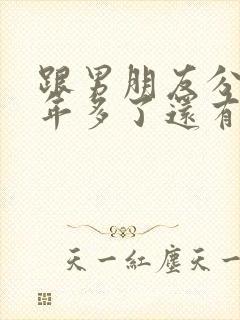 跟男朋友分
年多了還有
天一紅塵天一